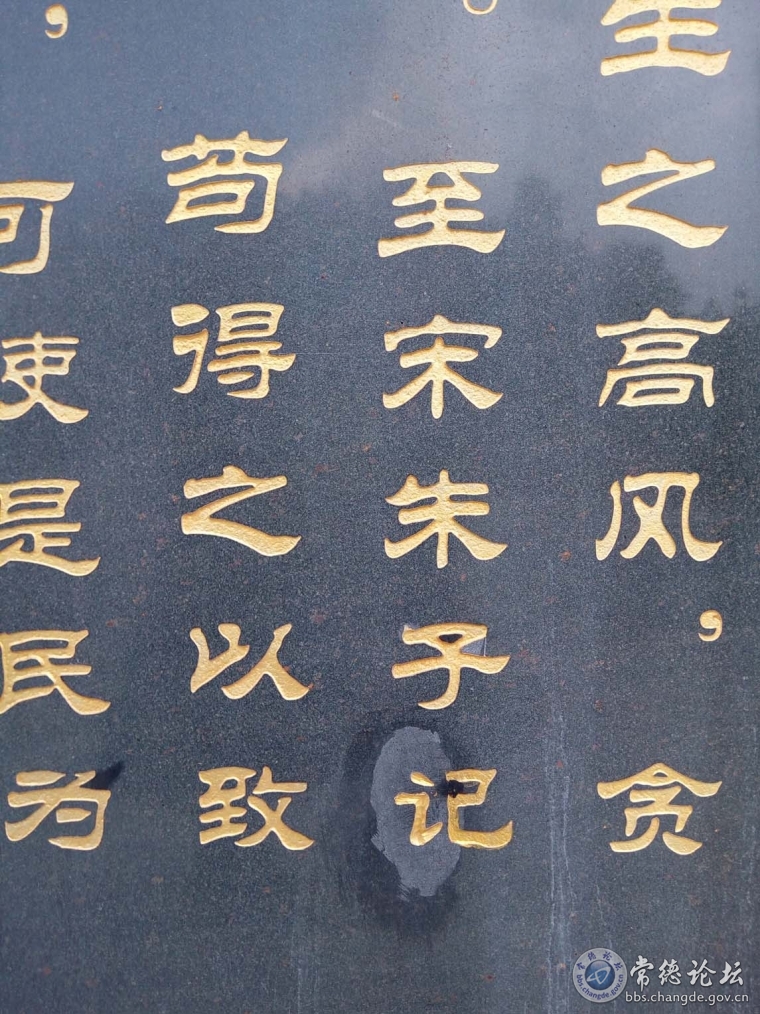 生之高风，贪
。至宋朱子记
苟得之以致
，可使是民为
常德论坛
bbs.changde.gov.cn
常德论坛